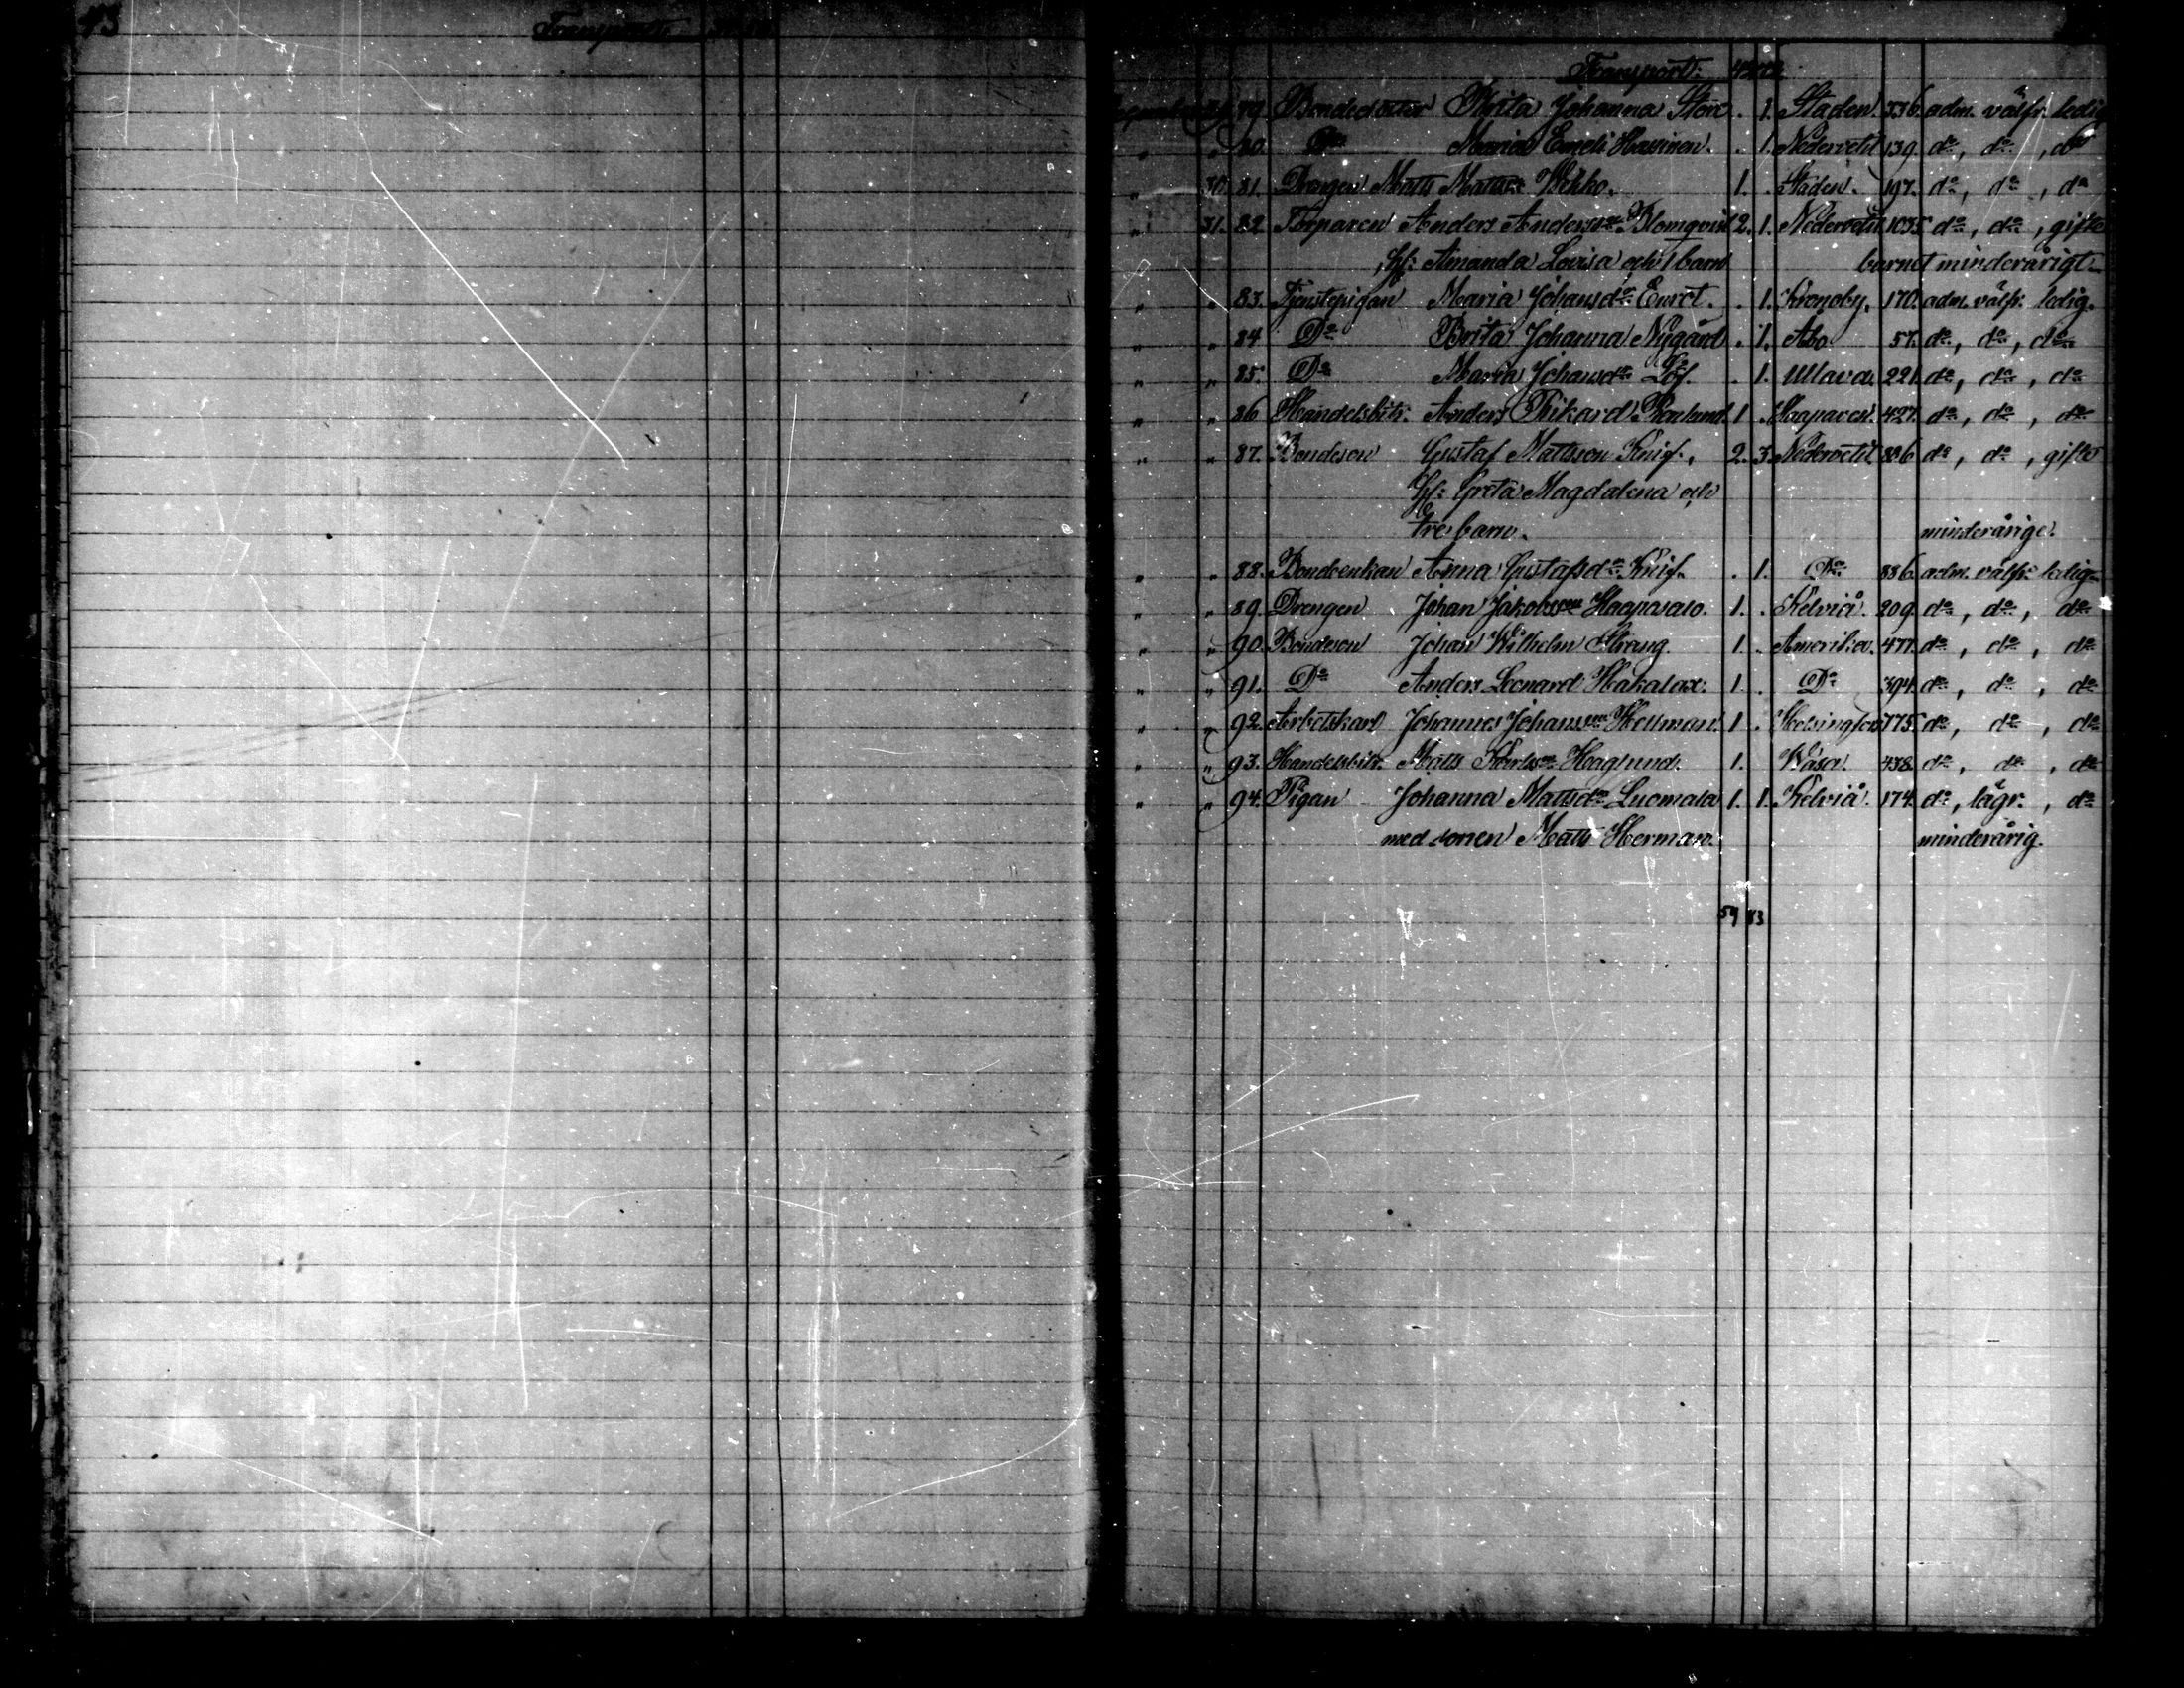 Transport:
79. Bondedotter Brita Johanna Stor . 1. Staden. 336. adm. välfr. ledig
" " 80. Do Maria Emeli Hassinen. . 1. Nedervetil 139. do, do, do
" 30. 81. Drengen Matts Mattss. Wekko. 1. . Staden. 197. do, do, do
" 31. 82. Torparen Anders Anderss. Blomqvist 2. 1. Nedervetil 1035 do, do, gifte
Hf: Amanda Lovisa och 1 barn barnet minderårigt
" " 83. Tjenstepigan Maria Johansdr . 1. Kronoby. 170. adm. välfr. ledig.
" " 84 Do Brita Johanna Nygård . 1. Åbo 57. do, do, do
" " 85. Do Maria Johansdr Löf. . 1. Ullava. 221. do, do, do
" " 86 Handelsbitr. Anders Rikard 1 . Haapavesi. 427. do, do, do
" " 87. Bondeson Gustaf Mattsson Knif, 2. 3. Nedervetil 886 do, do, gifte
Hf: Greta Magdalena och
tre barn. minderårige.
" " 88. Bondeenkan Anna Gustafsdr Knif. . 1. Do 886. adm. välfr. ledig
" " 89. Drengen Johan Jakobsson Haapasalo. 1. . Kelviå. 209. do, do, do
" " 90. Bondeson Johan Wilhelm Strang. 1. . Amerika. 477. do, do, do
" " 91. Do Anders Leonard Hakalax. 1. . Do 394. do, do, do
" " 92. Arbetskarl Johannes Johansson Hellman. 1 . Helsingfors 775. do, do, do
" " 93. Handelsbitr. Matts Karlsson Haglund. 1. Wasa. 438. do, do, do
" " 94. Pigan Johanna Mattsdr Luomala 1. 1. Kelviå. 174. do, lägr., do
med sonen Matts Herman. minderårig.
59 83